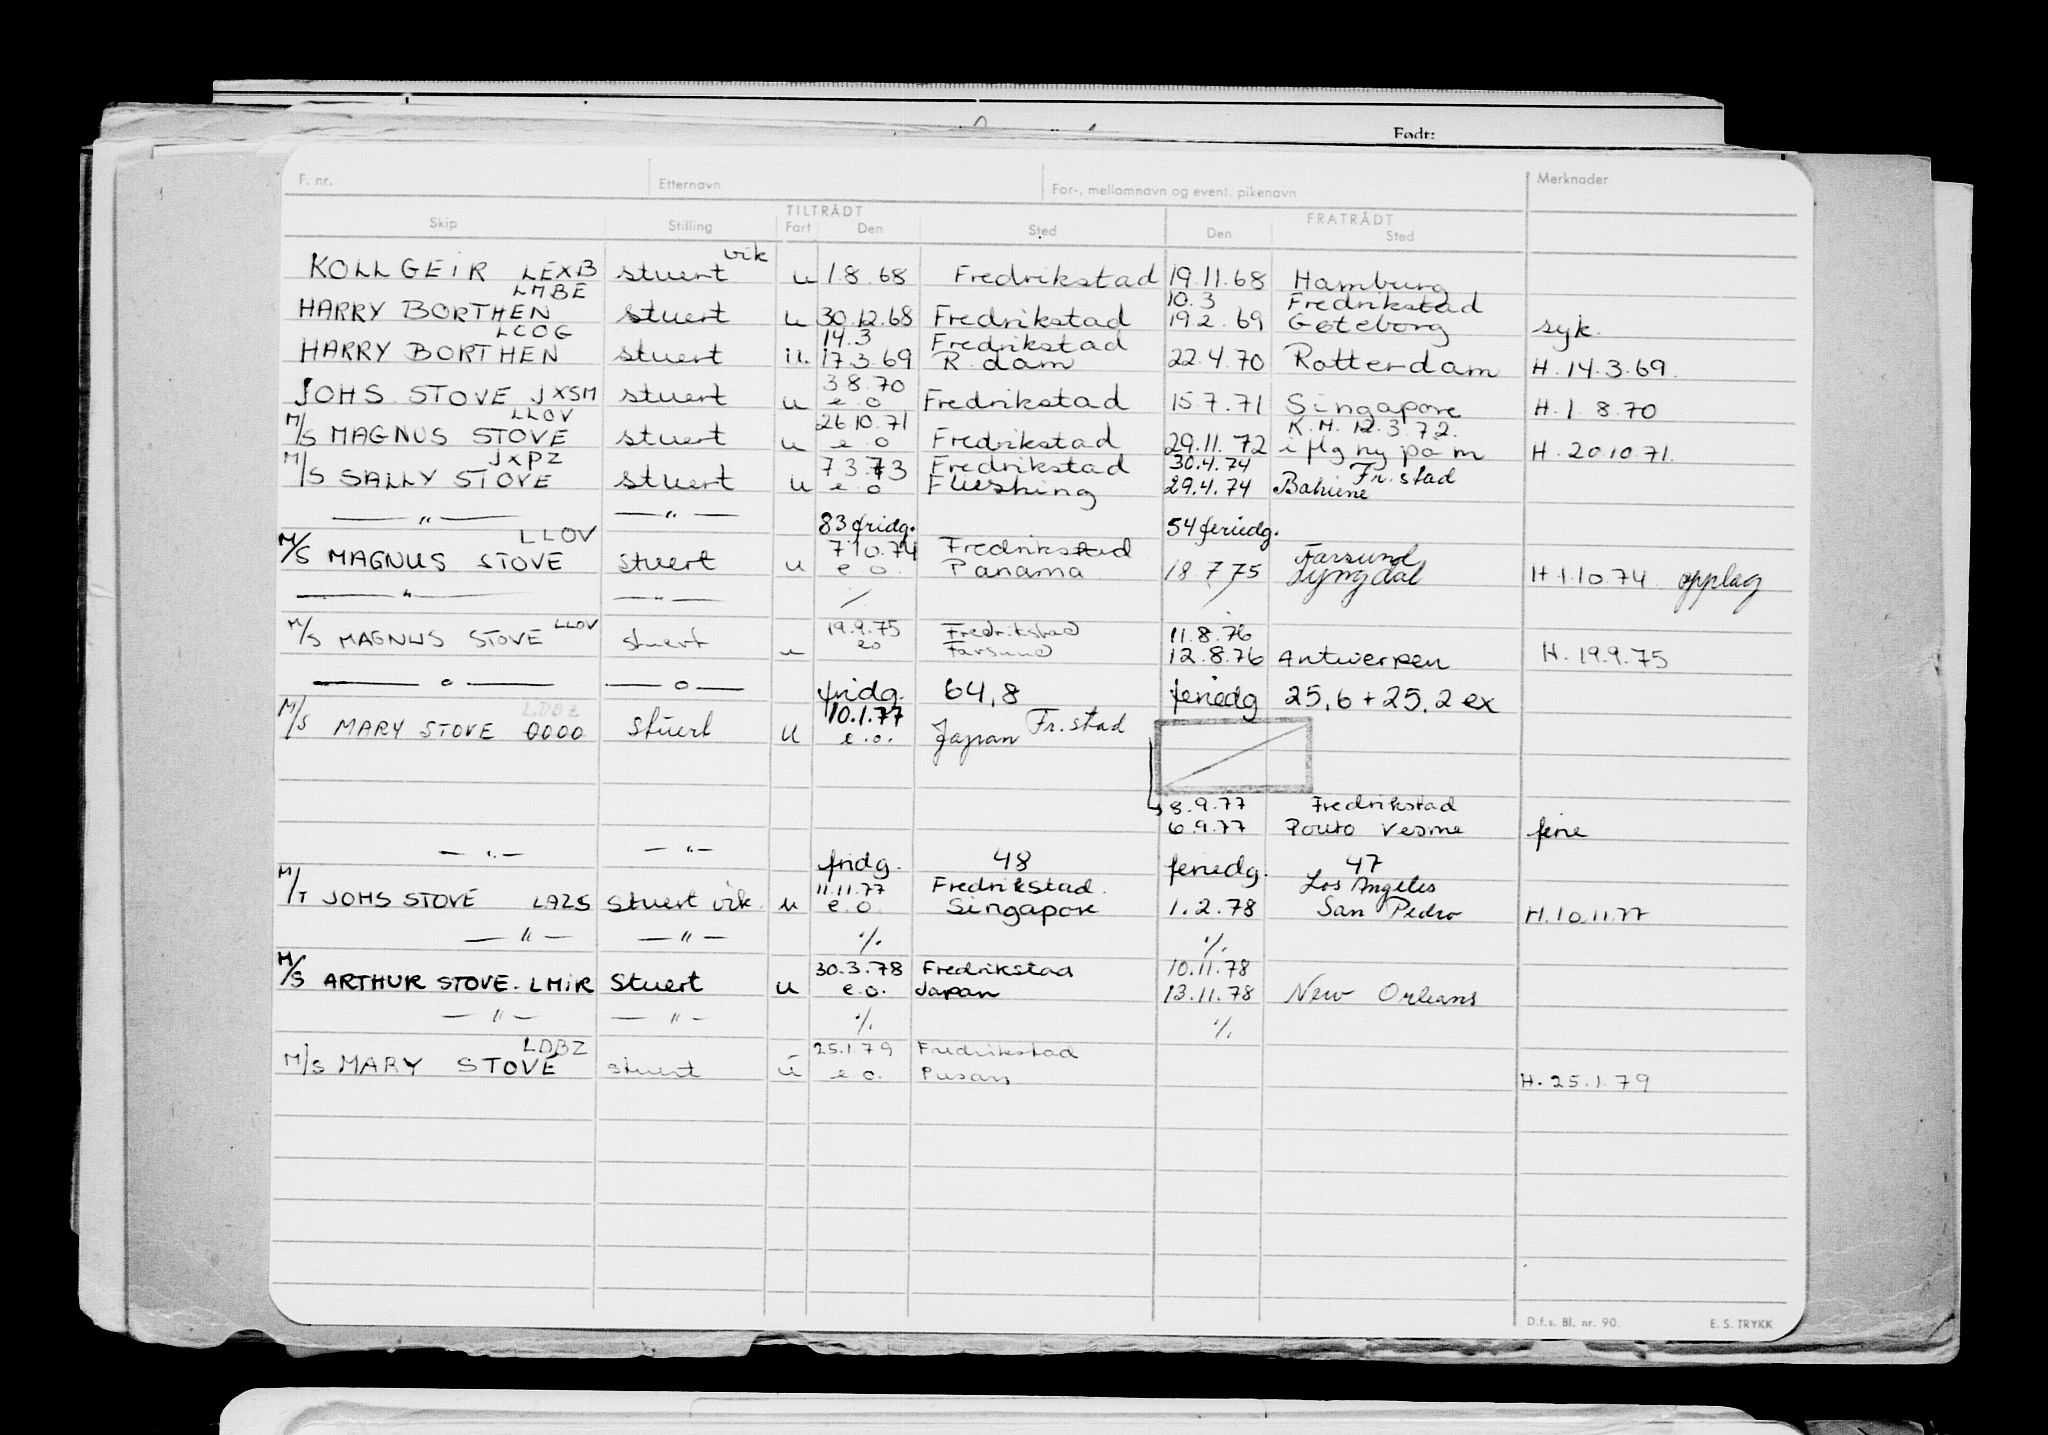 Født:
F. nr. Etternavn For-, mellomnavn og event. pikenavn Merknader
TILTRÅDT FRATRÅDT
Skip Stilling Fart Den Sted Den Sted
vik
KOLLGEIR LEXB stuert u 1.8.68 Fredrikstad 19.11.68 Hamburg
LMBE 10.3 Fredrikstad
HARRY BORTHEN stuert u 30.12.68 Fredrikstad 19.2.69 Gøteborg syk.
LCOG 14.3 Fredrikstad
HARRY BORTHEN stuert u. 17.3.69 R.dam 22.4.70 Rotterdam H.14.3.69.
3.8.70
JOHS STOVE JXSM stuert u e.o Fredrikstad 15.7.71 Singapore H.1.8.70
LLOV 26.10.71 K.H. 12.3.72.
M/S MAGNUS STOVE stuert u e.o Fredrikstad 29.11.72 i flg ny på m H.20.10.71.
JXPZ 7.3.73 Fredrikstad 30.4.74 Fr.stad
M/S SALLY STOVE stuert u e.o 29.4.74
— " — — " — 83 fridg. 54 feriedg.
LLOV 7.10.74 Fredrikstad Farsund
M/S MAGNUS STOVE stuert u e.o. Panama 18.7.75 Lyngdal H.1.10.74 opplag
— " — — " — / /
19.9.75 Fredrikstad 11.8.76
M/S MAGNUS STOVE LLOV stuert u eo Farsund 12.8.76 Antwerpen H.19.9.75
— o — — o — fridg. 64,8 feriedg 25,6 + 25,2 ex
LDBZ 10.1.77 Fr.stad
M/S MARY STOVE 0000 stuert u e.o. Japan
8.9.77 Fredrikstad
6.9.77 Porto Vesme ferie
— " — — " — fridg. 48 feriedg. 47
11.11.77 Fredrikstad. Los Angeles
M/T JOHS STOVE LAZS Stuert vik. u e.o. Singapore 1.2.78 San Pedro H.10.11.77
— " — — " — % %
30.3.78 Fredrikstad 10.11.78
M/S ARTHUR STOVE. LMIR Stuert u e.o. Japan 13.11.78 New Orleans
— " — — " — % %
LDBZ 25.1.79 Fredrikstad
M/S MARY STOVE stuert u e.o. Pusan H.25.1.79
D.f.s. Bl. nr. 90. E. S. TRYKK